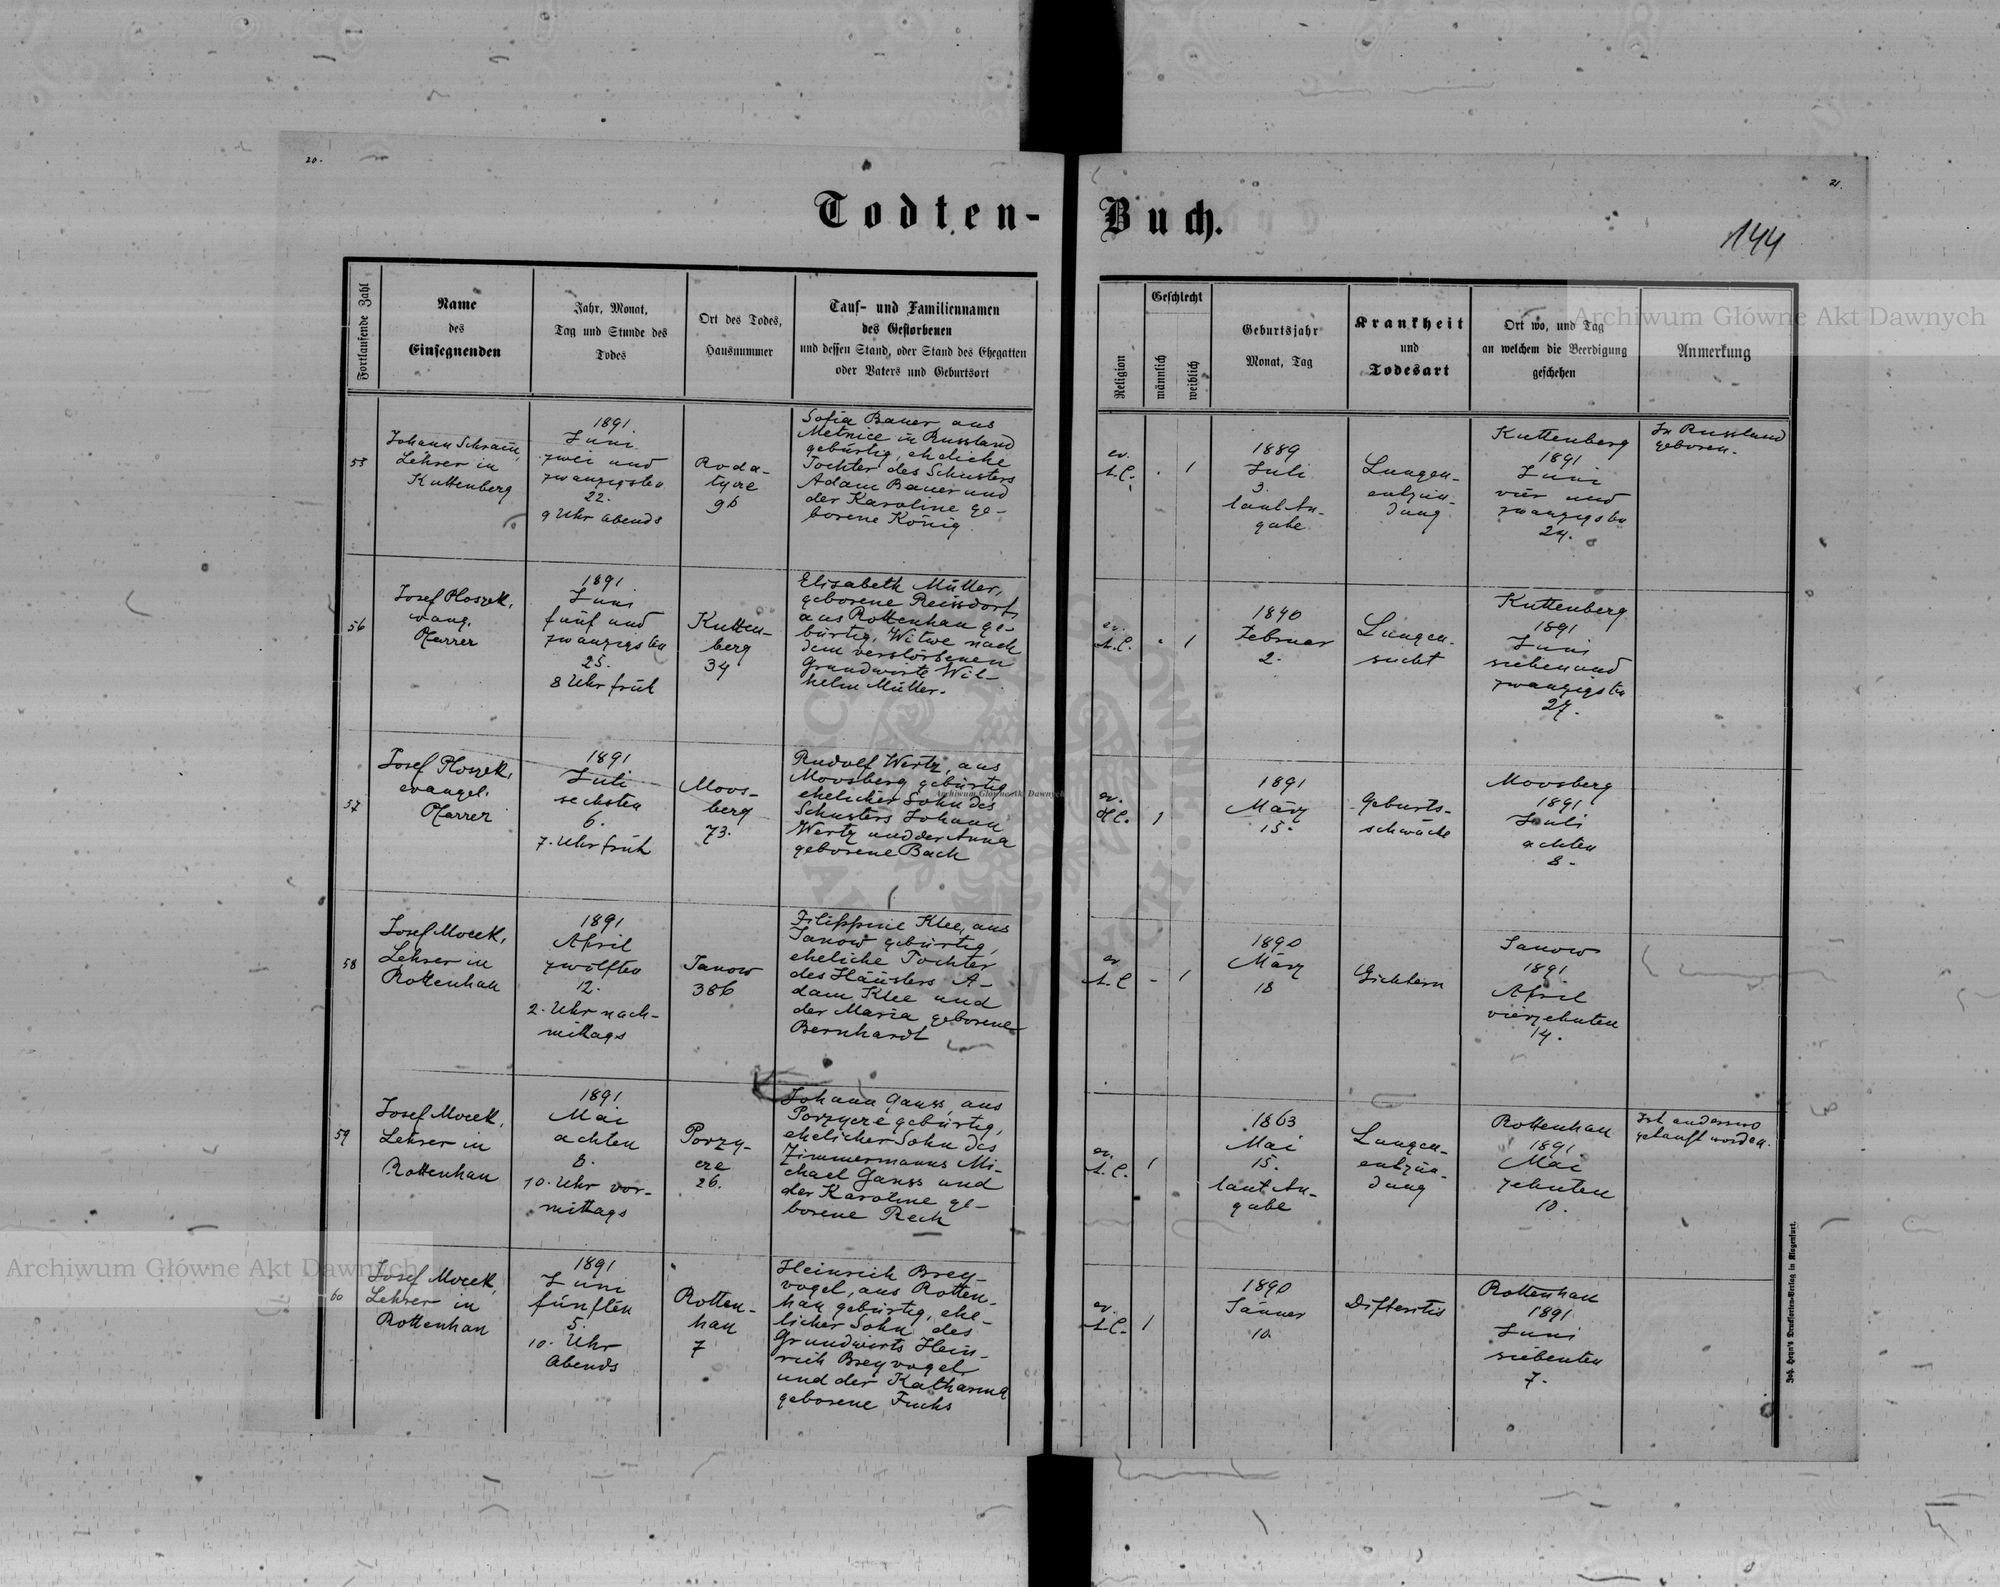 20.
21.
Todten-Buch.
144
Fortlaufende Zahl
Name
des
Einsegnenden
Jahr, Monat,
Tag und Stunde des
Todes
Ort des Todes,
Hausnummer
Tauf- und Familiennamen
des Gestorbenen
und dessen Stand, oder Stand des Ehegatten
oder Vaters und Geburtsort
Religion
Geschlecht
männlich
weiblich
Geburtsjahr
Monat, Tag
Krankheit
und
Todesart
Ort wo, und Tag
an welchem die Beerdigung
geschehen
Anmerkung
55
Johann Schram,
Lehrer in
Kuttenberg
1891.
Juni
zwei und
zwanzigsten
22.
9 Uhr abends
Roda-
tycze
96
Sofia Bauer aus
Metnice in Russland
gebürtig, eheliche
Tochter des Schusters
Adam Bauer und
der Karoline ge-
borene König
ev.
A.C.
1
1889
Juli
3.
laut An-
gabe
Lungen-
entzün-
dung
Kuttenberg
1891
Juni
vier und
zwanzigsten
24.
In Russland
geboren.
56
Josef Ploszek,
evang.
Pfarrer
1891
Juni
fünf und
zwanzigsten
25.
8 Uhr früh
Kutten-
berg
34
Elisabeth Müller,
geborene Reissdorf,
aus Rottenhan ge-
bürtig, Witwe nach
dem verstorbenen
Grundwirte Wil-
helm Müller.
ev.
A.C.
1
1840
Februar
2.
Lungen-
sucht
Kuttenberg
1891
Juni
sieben und
zwanzigsten
27.
57
Josef Ploszek,
evangel.
Pfarrer
1891
Juli
sechsten
6.
7. Uhr früh
Moos-
berg
73.
Rudolf Wertz, aus
Moosberg gebürtig
ehelicher Sohn des
Schusters Johann
Wertz und der Anna
geborene Bach
ev.
H.C.
1
1891
März
15.
Geburts-
schwäche
Moosberg
1891
Juli
achten
8.
58
Josef Mocek,
Lehrer in
Rottenhan
1891
April
zwölften
12.
2. Uhr nach-
mittags
Janow
386
Filippine Klee, aus
Janow gebürtig,
eheliche Tochter
des Häuslers A-
dam Klee und
der Maria geborene
Bernhardt
ev.
A.C.
-
1
1890
März
18
Gichtern
Janow
1891
April
vierzehnten
14.
59
Josef Mocek,
Lehrer in
Rottenhan
1891
Mai
achten
8.
10. Uhr vor-
mittags
Porzy-
cze
26.
Johann Ganss, aus
Porzycze gebürtig,
ehelicher Sohn des
Zimmermanns Mi-
chael Ganss und
der Karoline ge-
borene Rech
ev.
A.C.
1
1863
Mai
15.
laut An-
gabe
Lungen-
entzün-
dung
Rottenhan
1891
Mai
zehnten
10.
Ist anderswo
getauft worden.
60
Josef Mocek,
Lehrer in
Rottenhan
1891
Juni
fünften
5.
10. Uhr
Abends
Rotten-
han
7
Heinrich Brey-
vogel, aus Rotten-
han gebürtig, ehe-
licher Sohn des
Grundwirts Hein-
rich Breyvogel
und der Katharina
geborene Fuchs
ev.
A.C.
1
1890
Jänner
10.
Difteritis
Rottenhan
1891
Juni
siebenten
7.
Joh. Heyn's Drucksorten-Verlag in Klagenfurt.
Archiwum Główne Akt Dawnych
Archiwum Główne Akt Dawnych
Archiwum Główne Akt Dawnych